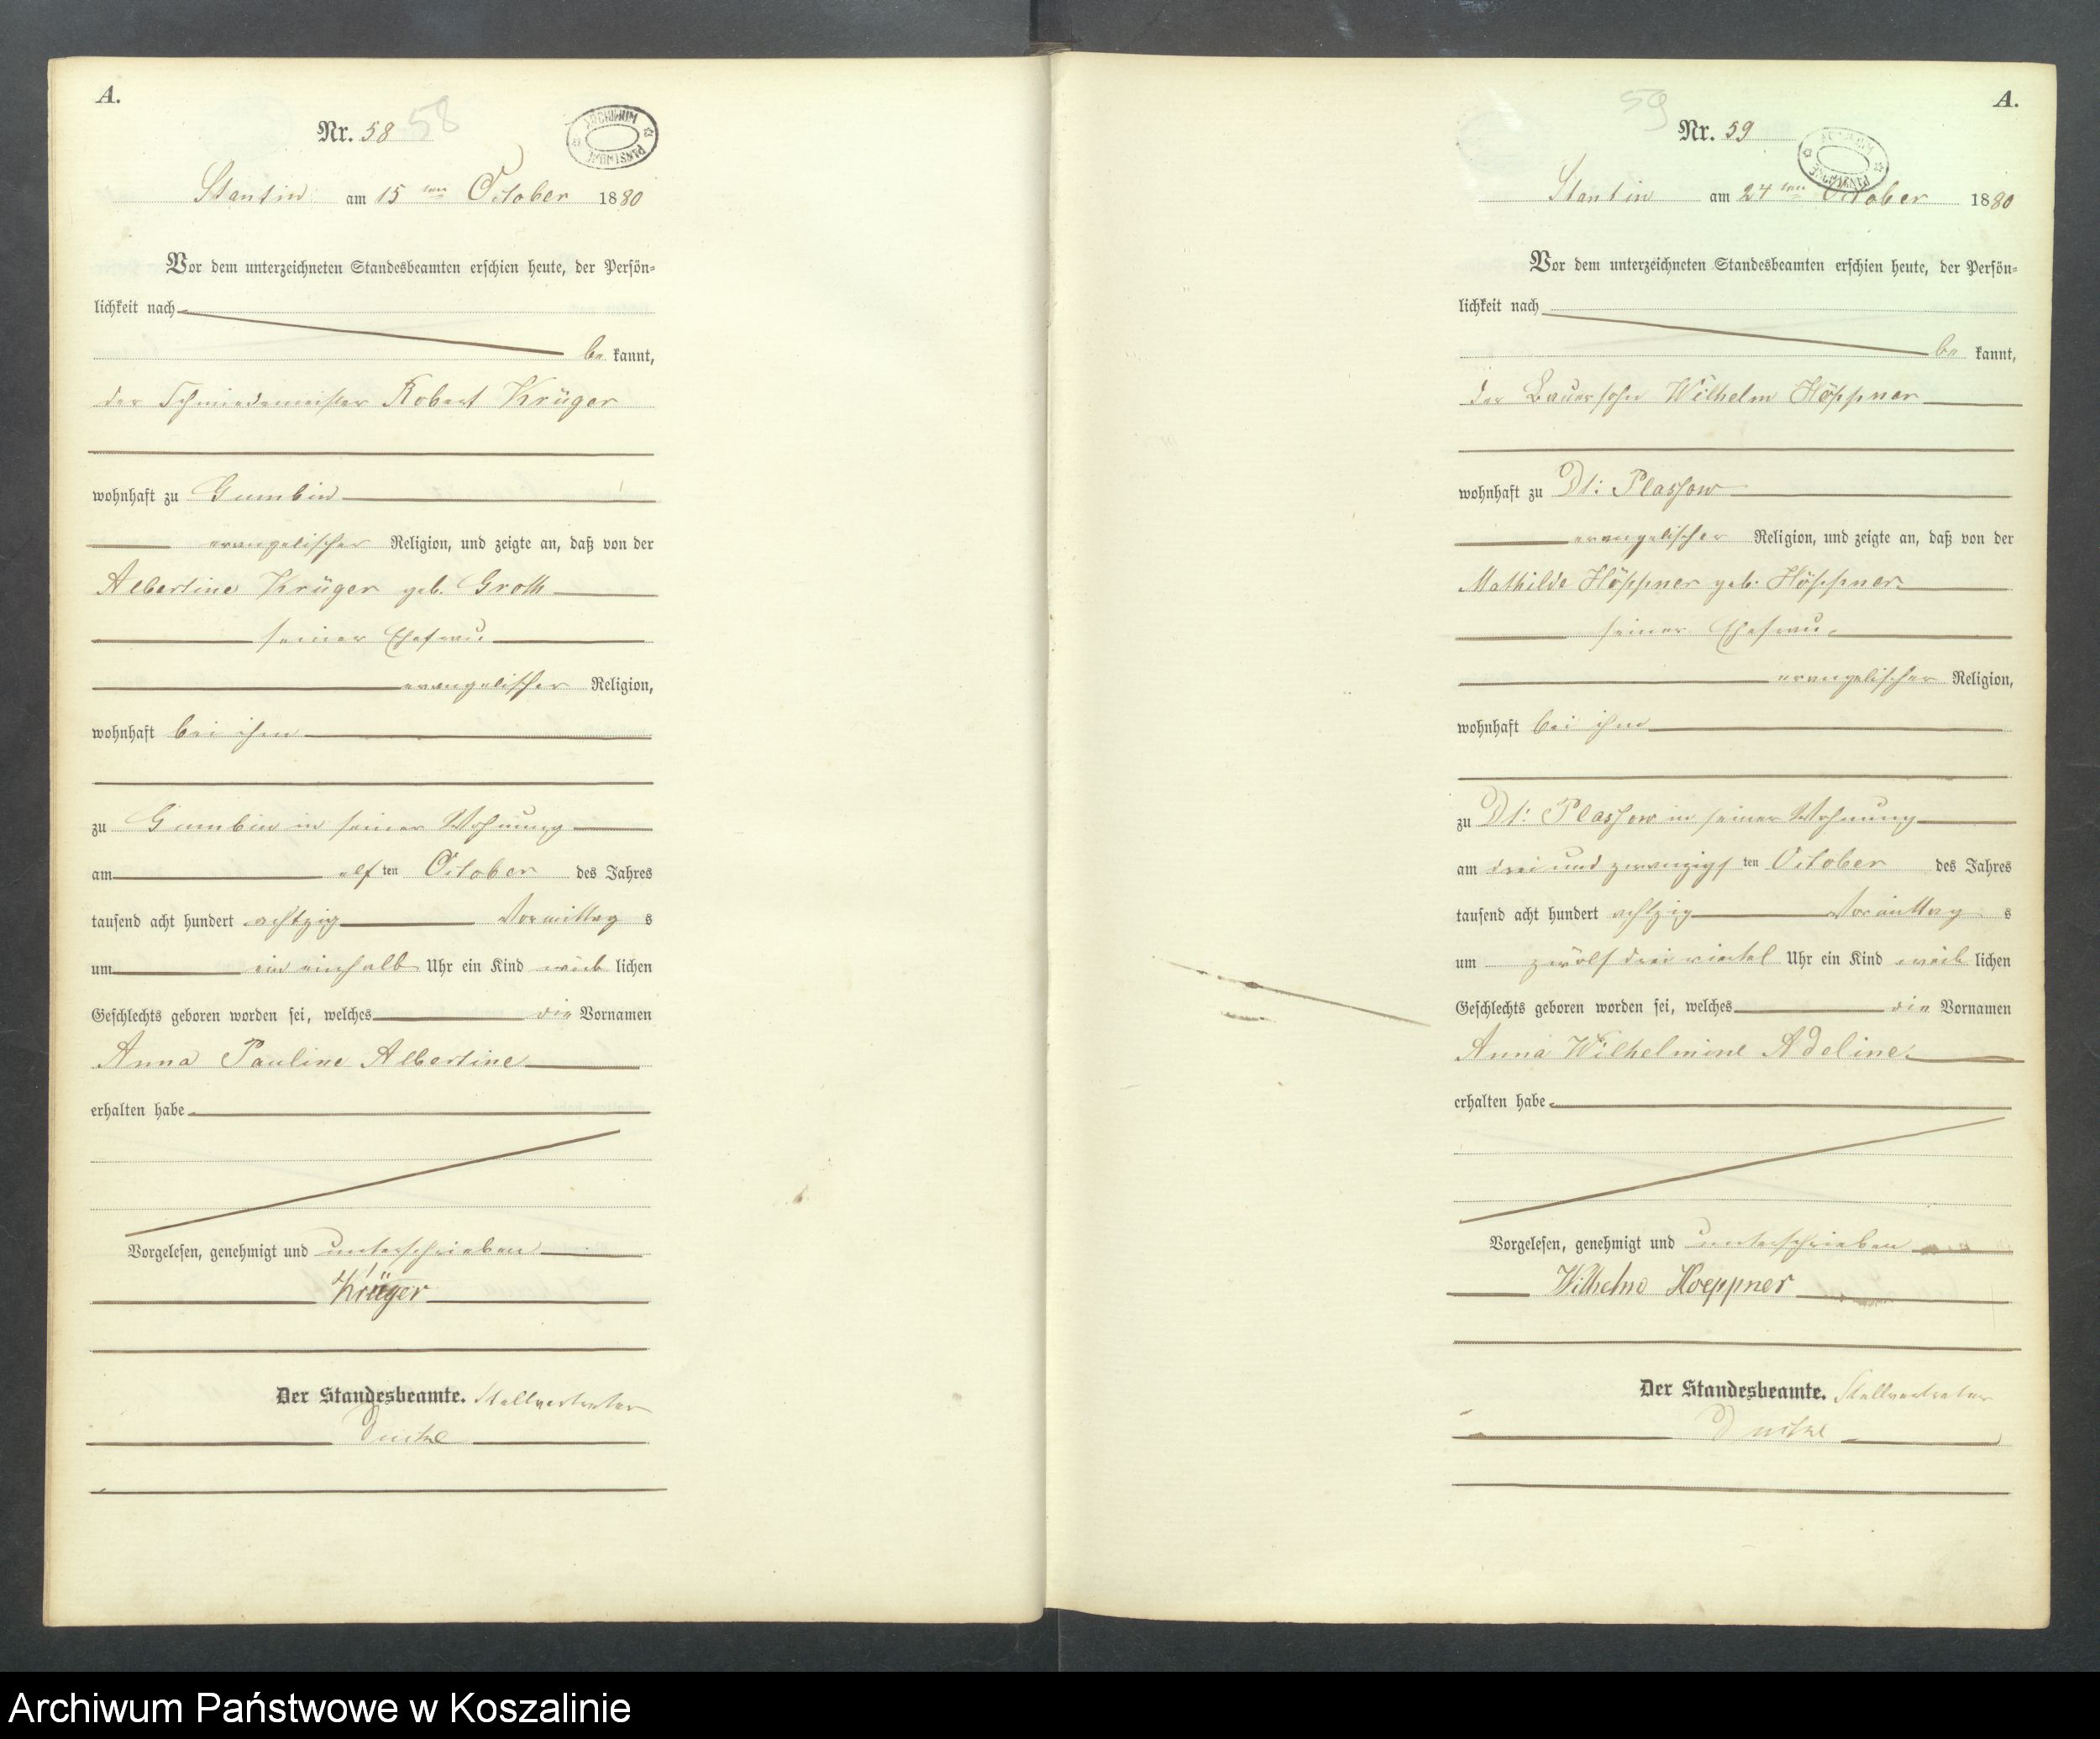 A.
Nr. 58 58
ARCHIWUM PAŃSTWOWE
Stantin am 15ten October 1880
Vor dem unterzeichneten Standesbeamten erschien heute, der Persön=
lichkeit nach
be kannt,
der Schmiedemeister Robert Krüger
wohnhaft zu Gumbin
evangelischer Religion, und zeigte an, daß von der
Albertine Krüger geb. Groth
seiner Ehefrau
evangelischer Religion,
wohnhaft bei ihm
zu Gumbin in seiner Wohnung
am elf ten October des Jahres
tausend acht hundert achtzig Vormittag s
um ein einhalb Uhr ein Kind weib lichen
Geschlechts geboren worden sei, welches die Vornamen
Anna Pauline Albertine
erhalten habe
Vorgelesen, genehmigt und unterschrieben
Krüger
Der Standesbeamte. Stellvertreter
A.
59
Nr. 59
ARCHIWUM PAŃSTWOWE
Stantin am 24ten October 1880
Vor dem unterzeichneten Standesbeamten erschien heute, der Persön=
lichkeit nach
be kannt,
der Bauersohn Wilhelm Höppner
wohnhaft zu Dt: Plassow
evangelischer Religion, und zeigte an, daß von der
Mathilde Höppner geb. Höppner
seiner Ehefrau
evangelischer Religion,
wohnhaft bei ihm
zu Dt: Plassow in seiner Wohnung
am drei und zwanzigs ten October des Jahres
tausend acht hundert achtzig Vormittag s
um zwölf drei viertel Uhr ein Kind weib lichen
Geschlechts geboren worden sei, welches die Vornamen
Anna Wilhelmine Adeline
erhalten habe
Vorgelesen, genehmigt und unterschrieben
Wilhelm Hoeppner
Der Standesbeamte. Stellvertreter
Archiwum Państwowe w Koszalinie